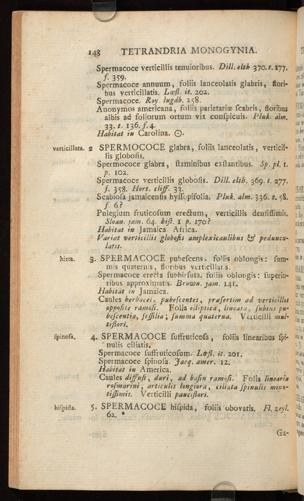 148 TETRANDRIA MONOGYNIA.
Spermacoce verticillis tenuioribus. Dill. elth 370. t. 277.
f. 359.
Spermacoce annuum, foliis lanceolatis glabris, flori-
bus verticillatis. Loefl. it. 202.
Spermacoce. Roy. lugdb. 258.
Anonymos americana, foliis parietariæ scabris, floribus
albis ad foliorum ortum vix conspicuis. Pluk. alm.
33. t. 136. f. 4.
Habitat in Carolina. ☉.
verticillata. 2 SPERMOCOCE glabra, foliis lanceolatis, verticil-
lis globosis.
Spermococe glabra, staminibus exstantibus. Sp. pl. 1.
p. 102.
Spermacoce verticillis globosis. Dill. elth. 369. t. 277.
f. 358. Hort. cliff. 33.
Scabiosa jamaicensis hyssopifolia. Pluk. alm. 336. t. 58.
f. 6?
Pulegium fruticosum erectum, verticillis densissimis.
Sloan. jam. 64. hist. 1. p. 170?
Habitat in Jamaica Africa.
Variat verticillis globosis amplexicaulibus & peduncu-
latis.
hirta. 3. SPERMACOCE pubescens. foliis oblongis: sum-
mis quaternis, floribus verticillatis.
Spermacoce erecta subhirsuta, foliis oblongis: superio-
ribus approximatis. Brown. jam. 141.
Habitat in Jamaica.
Caules herbacei, pubescentes, præsertim ad verticillos
oppositè ramosi. Folia elliptica, lineata, subtus pu-
bescentia, sessilia; summa quaterna. Verticilli mul-
tiflori.
spinosa. 4. SPERMACOCE suffruticosa, foliis linearibus spi-
nulis ciliatis.
Spermacoce suffruticosum. Loefl. it. 201.
Spermacoce spinosa. Jacq. amer. 12.
Habitat in America.
Caules diffusi, duri, ad basin ramosi. Folia linearia
rosmarini, articulis longiora, ciliata spinulis minu-
tissimis. Verticilli pauciflori.
hispida. 5. SPERMACOCE hispida, foliis obovatis. Fl. zeyl.
62. *
Ga-